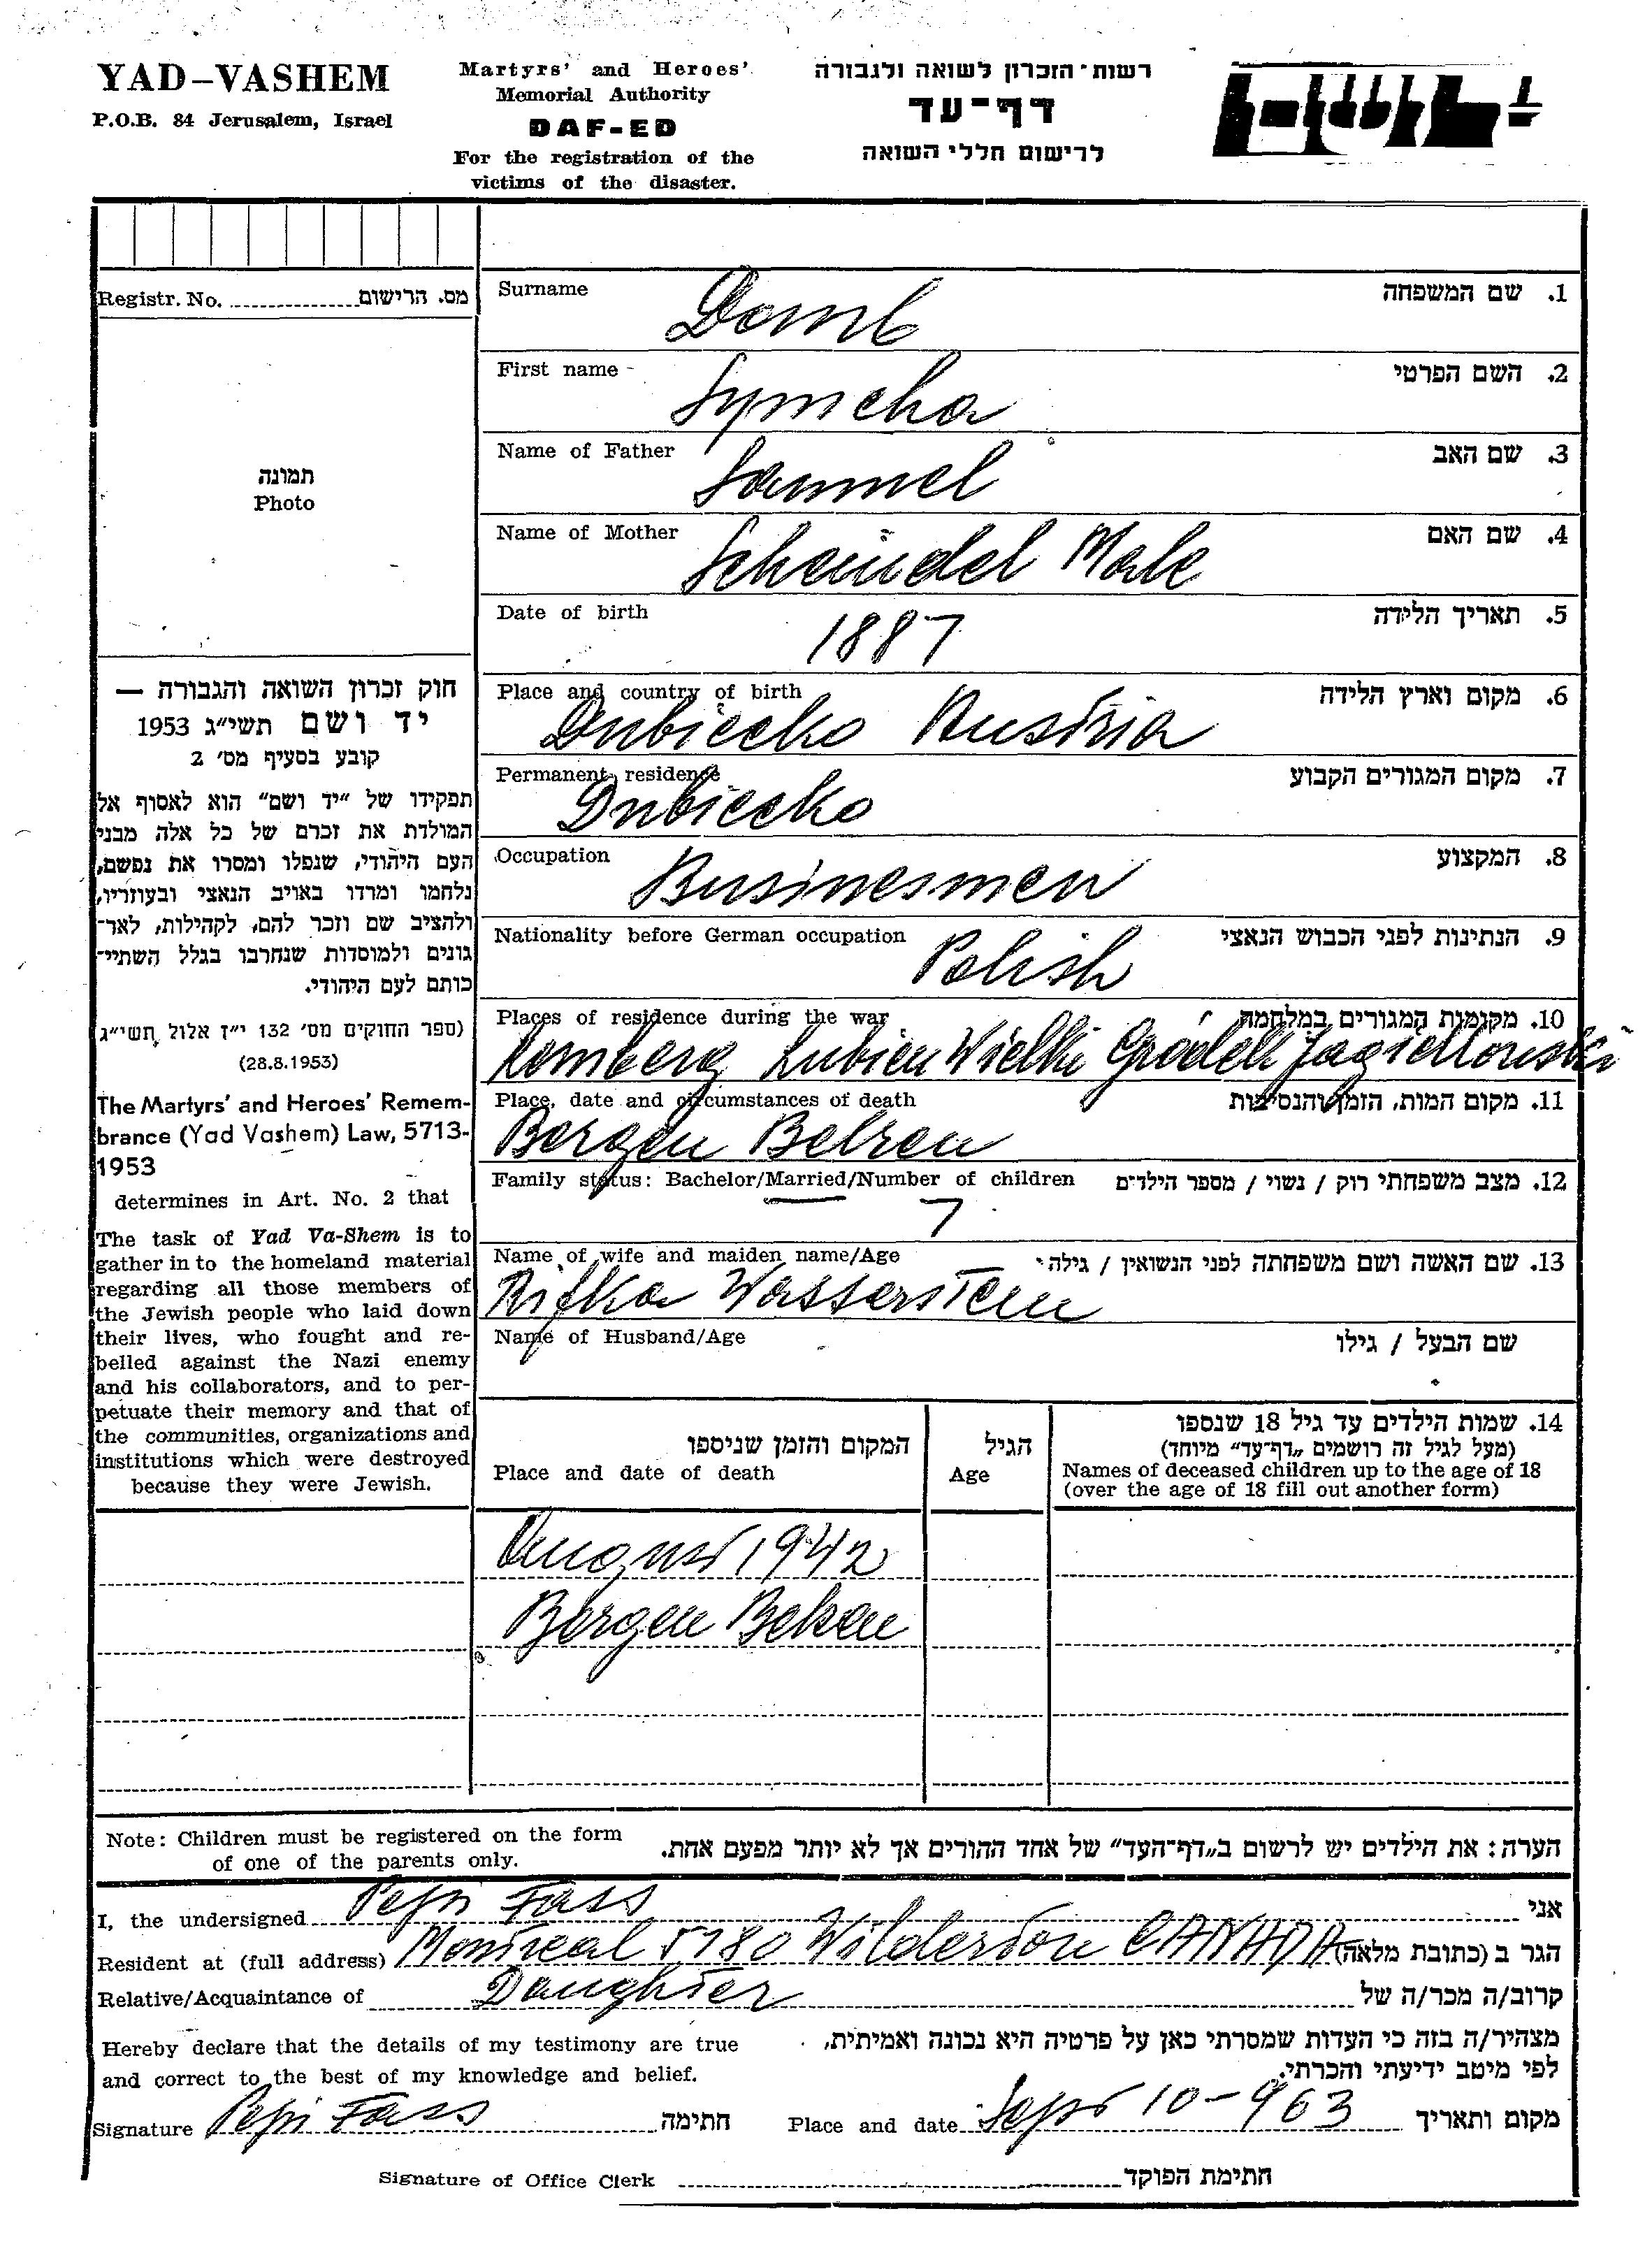 YAD-VASHEM
P.O.B. 84 Jerusalem, Israel
Martyrs' and Heroes'
Memorial Authority
DAF-ED
For the registration of the
victims of the disaster.
רשות-הזכרון לשואה ולגבורה
דף-עד
לרישום חללי השואה
Registr. No. מס. הרישום
תמונה
Photo
חוק זכרון השואה והגבורה —
יד ושם תשי״ג 1953
קובע בסעיף מס׳ 2
תפקידו של ״יד ושם״ הוא לאסוף אל
המולדת את זכרם של כל אלה מבני
העם היהודי, שנפלו ומסרו את נפשם,
נלחמו ומרדו באויב הנאצי ובעוזריו,
ולהציב שם וזכר להם, לקהילות, לאר-
גונים ולמוסדות שנחרבו בגלל השתיי-
כותם לעם היהודי.
(ספר החוקים מס׳ 132 י״ז אלול תשי״ג
(28.8.1953)
The Martyrs' and Heroes' Remem-
brance (Yad Vashem) Law, 5713-
1953
determines in Art. No. 2 that
The task of Yad Va-Shem is to
gather in to the homeland material
regarding all those members of
the Jewish people who laid down
their lives, who fought and re-
belled against the Nazi enemy
and his collaborators, and to per-
petuate their memory and that of
the communities, organizations and
institutions which were destroyed
because they were Jewish.
Surname Domb 1. שם המשפחה
First name Symcha 2. השם הפרטי
Name of Father Sammel 3. שם האב
Name of Mother Scheindel Male 4. שם האם
Date of birth 1887 5. תאריך הלידה
Place and country of birth 6. מקום וארץ הלידה
Dubiecko Austria
Permanent residence 7. מקום המגורים הקבוע
Dubiecko
Occupation 8. המקצוע
Businesmen
Nationality before German occupation 9. הנתינות לפני הכבוש הנאצי
Polish
Places of residence during the war 10. מקומות המגורים במלחמה
Lemberg Lubien Wielki Grodek Jagiellonski
Place, date and circumstances of death 11. מקום המות, הזמן והנסיבות
Bergen Belzen
Family status: Bachelor/Married/Number of children 12. מצב משפחתי רוק / נשוי / מספר הילדים
7
Name of wife and maiden name/Age 13. שם האשה ושם משפחתה לפני הנשואין / גילה
Rifka Wasserstein
Name of Husband/Age שם הבעל / גילו
14. שמות הילדים עד גיל 18 שנספו
(מעל לגיל זה רושמים „דף-עד״ מיוחד)
Names of deceased children up to the age of 18
(over the age of 18 fill out another form)
הגיל
Age
המקום והזמן שניספו
Place and date of death
August 1942
Bergen Belsen
Note: Children must be registered on the form
of one of the parents only.
הערה: את הילדים יש לרשום ב„דף-העד״ של אחד ההורים אך לא יותר מפעם אחת.
I, the undersigned Pepi Fass אני
Resident at (full address) Montreal 5780 Wilderton CANADA הגר ב (כתובת מלאה)
Relative/Acquaintance of Daughter קרוב/ה מכר/ה של
Hereby declare that the details of my testimony are true
and correct to the best of my knowledge and belief.
מצהיר/ה בזה כי העדות שמסרתי כאן על פרטיה היא נכונה ואמיתית,
לפי מיטב ידיעתי והכרתי.
Signature Pepi Fass חתימה Place and date Sept 10-963 מקום ותאריך
Signature of Office Clerk חתימת הפוקד